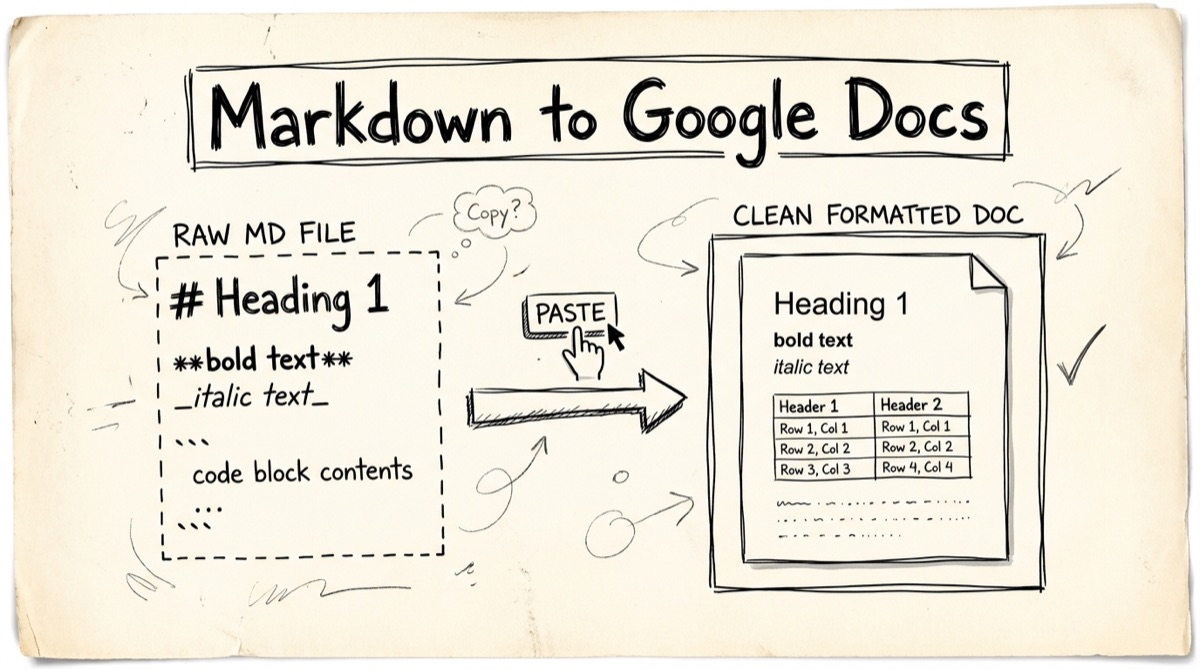 Markdown to Google Docs
Copy?
RAW MD FILE
# Heading 1
**bold text**
_italic text_
```
code block contents
...
```
PASTE
CLEAN FORMATTED DOC
Heading 1
bold text
italic text
Header 1 Header 2
Row 1, Col 1 Row 1, Col 1
Row 2, Col 2 Row 2, Col 2
Row 3, Col 3 Row 4, Col 4